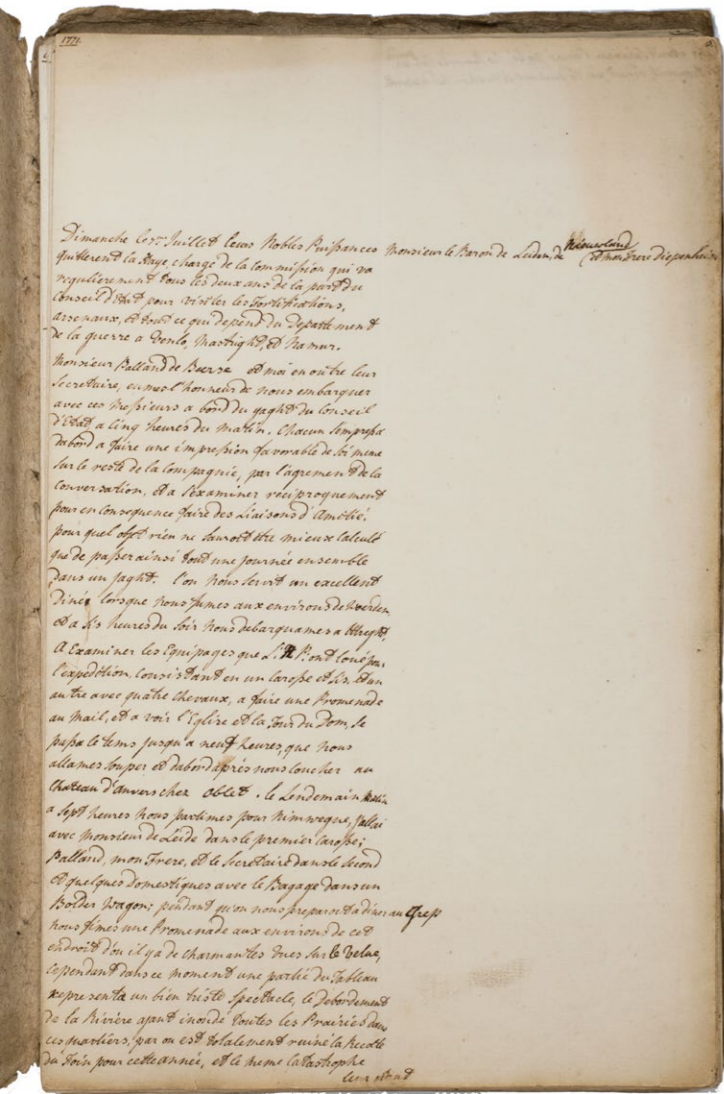 1771.
Dimanche le 7 Juillet leurs Nobles Puissances Monsieur le Baron de Leiden, de Nieuwland et mon frere Diepenheim
quitterent la Haye, charge de la Commission qui va
regulierement tous les deux ans de la part du
Conseil d'Etat pour visiter les Fortifications,
assenaux, et tout ce qui depend du Departement
de la guerre a Venlo, Mastright, et Namur.
Monsieur Balland de Beerse et moi en outre leur
Secretaire, eumes l'honneur de nous embarquer
avec ces Messieurs a bord du jaght du Conseil
d'Etat, a cinq heures du matin. Chacun s'empressa
dabord a faire une impression favorable de soi meme
sur le reste de la Compagnie, par l'agrement de la
Conversation, et a s'examiner reciproquement
pour en consequence faire des Liaisons d'Amitié:
pour quel rien ne sauroit être mieux calculé
que de passer ainsi tout une journée ensemble
dans un jaght. l'on nous servit un excellent
Diné lorsque nous fumes aux environs de Woerden,
et a six heures du Soir nous debarquames a Utreght,
A Examiner les Equipages que L: N: P: ont loué pour
l'expedition, consistant en un Carosse et six, et un
autre avec quatre Chevaux, a faire une Promenade
au Mail, et a voir l'Eglise et la Tour du Dom, se
passa le tems jusqu'a neuf heures, que nous
allames souper et dabord après nous coucher au
Chateau d'Anvers chez Oblet. le Lendemain matin
a sept heures nous partimes pour Nimwegue, j'allai
avec Monsieur de Leide dans le premier Carosse;
Balland, mon Frere, et le Secretaire dans le Second
et quelques Domestiques avec le Bagage dans un
Bolder Wagon; pendant qu'on nous preparoit a diner au Grep
nous fimes une Promenade aux environs de cet
endroit d'ou il y a de charmantes vues sur le Velue,
Cependant dans ce moment une partie du Tableau
representa un bien triste Spectacle, le Debordement
de la Rivière ajant inondé toutes les Prairies dans
ces quartiers, par ou est totalement ruiné la Recolte
du foin pour cette année, et le meme Catastrophe